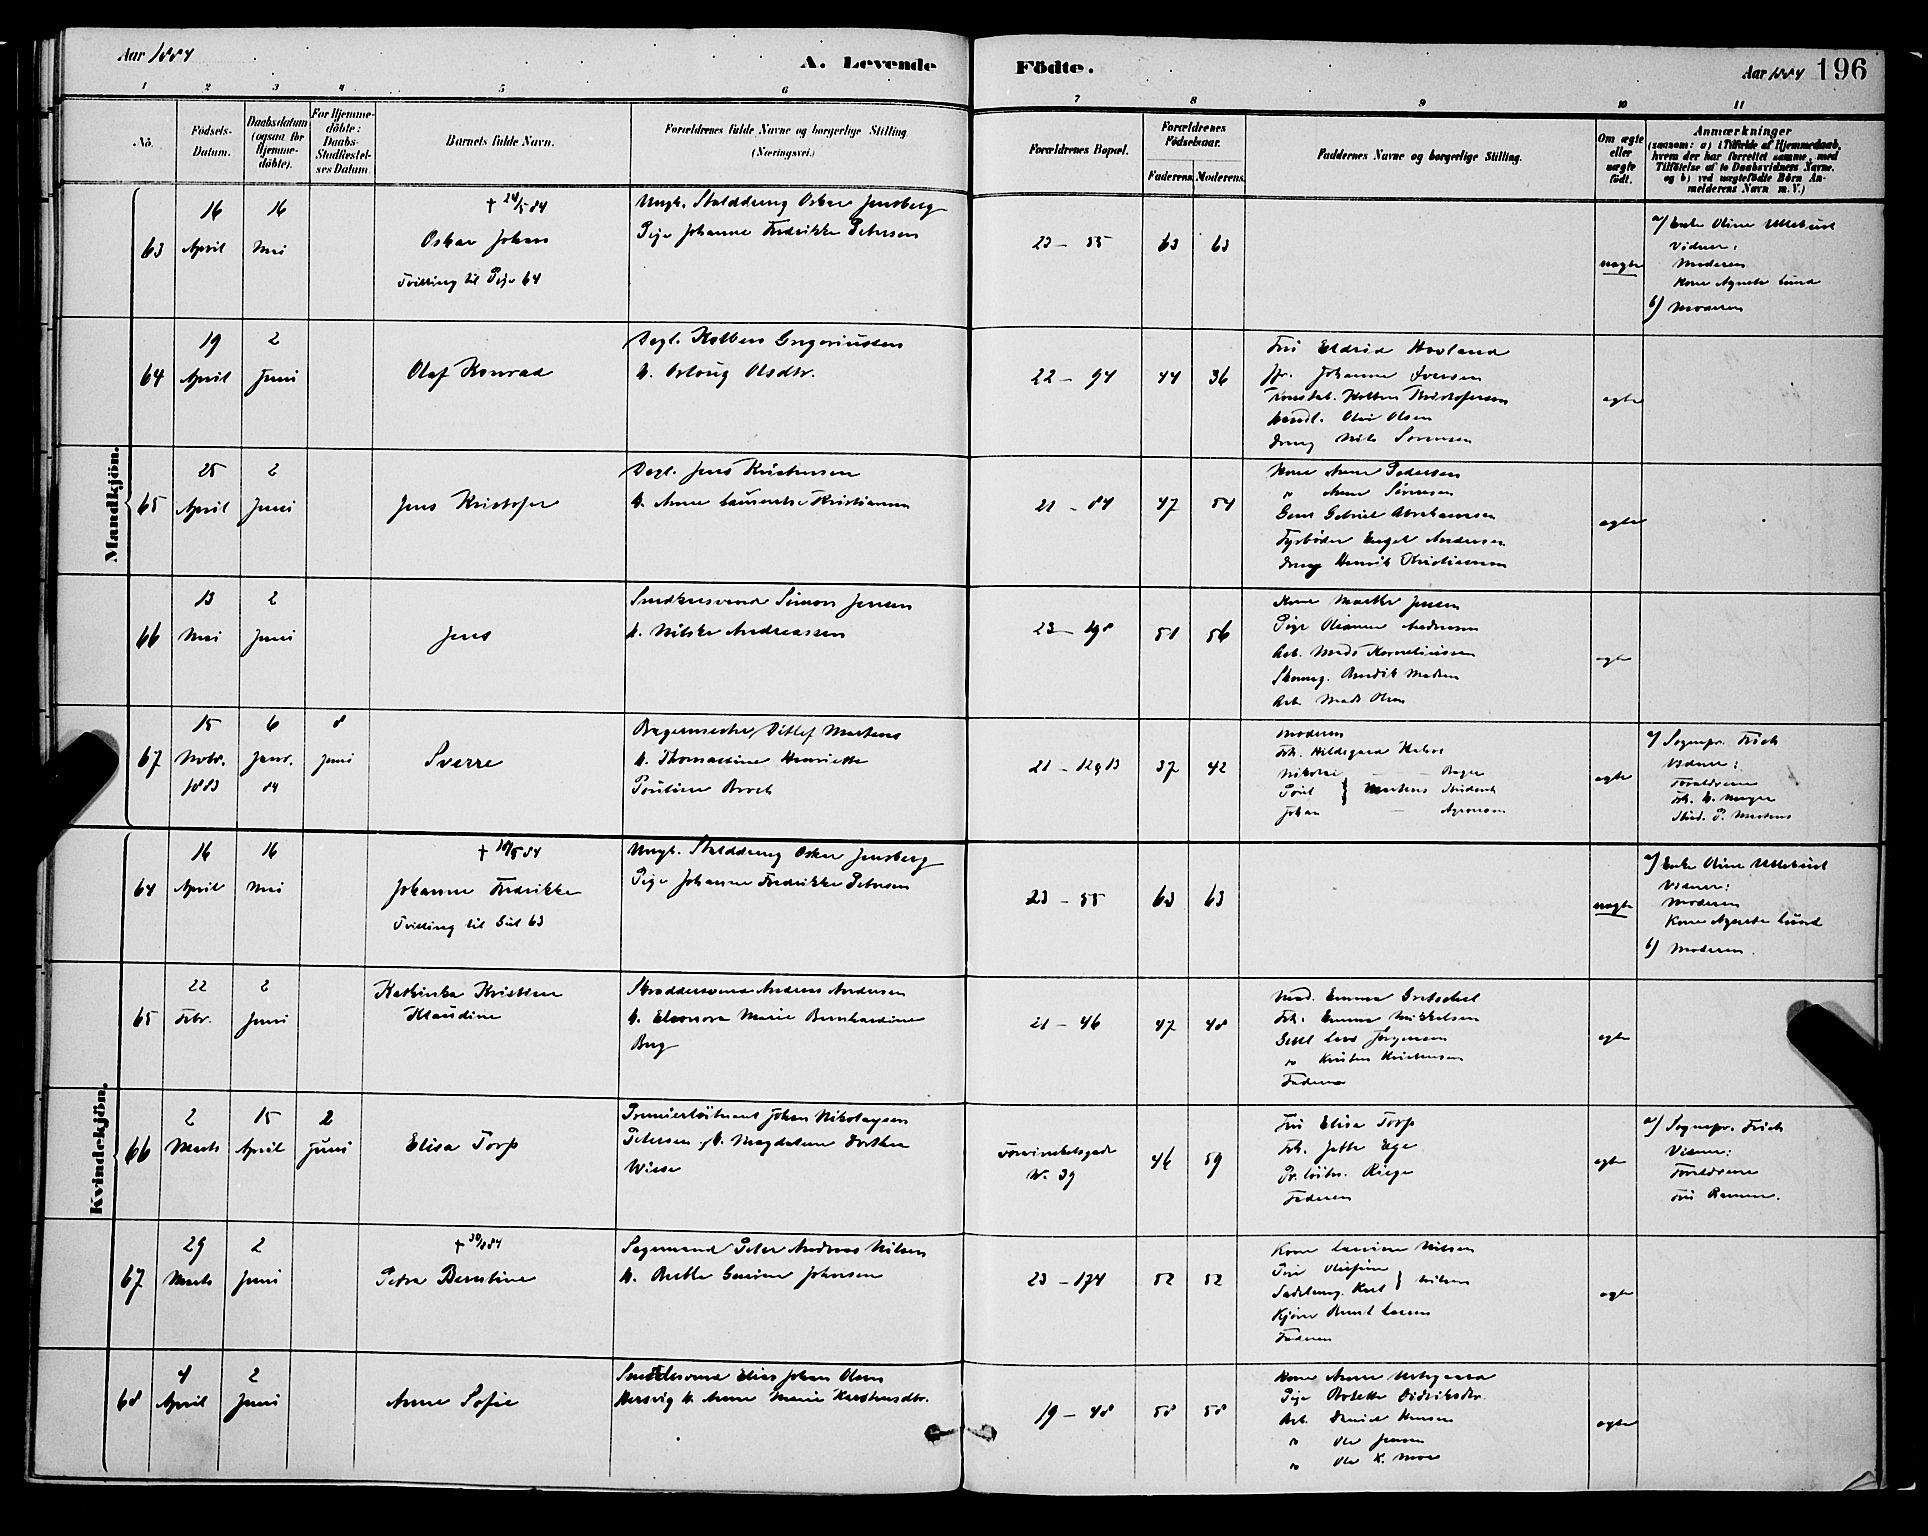 Aar 1884
A. Levende
Födte.
Aar 1884
196
1 2 3 4 5 6 7 8 9 10 11
No.
Födsels-Datum.
Daabsdatum (ogsaa for Hjemme-döbte).
For Hjemme-döbte: Daabs-Stadfæstel-ses Datum
Barnets fulde Navn.
Forældrenes fulde Navne og borgerlige Stilling (Næringsvei.)
Forældrenes Bopæl.
Forældrenes Födselsaar.
Faderens. Moderens.
Faddernes Navne og borgerlige Stilling.
Om ægte eller uægte födt.
Anmærkninger
(saasom: a) i Tilfælde af Hjemmedaab, hvem der har forrettet samme, med Tilföielse af to Daabsvidners Navne. og b) ved uægtefödte Börn An-melderens Navn m. V.)
Mandkjön.
63
16 April
16 Mai
† 24/5 84
Oskar Johan
Tvilling til Pige 64
Ungk. Stalddreng Oskar Jensberg
Pige Johanne Fredrikke Petersen
23 – 55
63
63
uægte
a) Enke Oline Ulleburst
Vidner:
Moderen
Kone Agnete Lund
b) Moderen
64
19 April
2 Juni
Olaf Konrad
Dagl. Kolben Gregoriussen
h. Aslaug Olsdtr.
22 – 94
44
36
Fru Eldrid Hovland
Jfr. Johanne Iversen
Konstab. Kolben Kristofersen
Handl. Olai Olsen
Dreng Nils Sörensen
ægte
65
25 April
2 Juni
Jens Kristofer
Dagl. Jens Kristensen
h. Anne Laurentze Kristiansen
21 – 84
47
54
Kone Anne Pedersen
" Anne Sörensen
Gabriel Abrahamsen
Fyrböder Engel Andersen
Dreng Henrik Kristiansen
ægte
66
13 Mai
2 Juni
Jens
Smedesvend Simon Jensen
h. Nilske Andreassen
23 – 198
51
56
Kone Marthe Jensen
Pige Andersen
Arb. Mads Korneliussen
Skomag. Bendik Madsen
Arb. Mads Olsen
ægte
67
15 Novbr. 1883
6 Janr. 84
8 Juni
Sverre
Bagermester Ditlef Martens
h. Thomassine Henriette
Pouline Broch
21 – 12 9 13
37
42
Moderen
Frk. Hildegard
Nikolai – Bager
Poul } Martens Student
Johan – Agronom
ægte
a) Sognepr. Frich
Vidner:
Forældrene
Frk. H. Meyer
Stud. P. Martens
Kvindekjön.
64
16 April
16 Mai
† 19/5 84
Johanne Fredrikke
Tvilling til Gut 63
Ungk. Stalddreng Oskar Jensberg
Pige Johanne Fredrikke Petersen
23 – 55
63
63
uægte
a) Enke Oline Ulleburst
Vidner:
Moderen
Kone Agnete Lund
b) Moderen.
65
22 Febr.
2 Juni
Kathinka Kristine
Klaudine
Skræddersvend Andreas Andersen
h. Eleonora Marie Bernhardine
Berg
21 – 46
47
48
Mad. Emma Gretschel
Frk. Emma Mikkelsen
Lars Jörgensen
" Kristen Kristensen
Faderen
ægte
66
2 Marts
15 April
2 Juni
Elisa Torp
Premierlöitnant Johan Nikolaysen
Petersen, h. Magdalene Dorthea
Wiese
Torvindelsgade
No. 39
46
59
Fru Elisa Torp
Frk. Jette Ege
Pr. löitn. Riege
Faderen
ægte
a) Sognepr. Frich
Vidner:
Forældrene
Fru
67
29 Marts
2 Juni
† 30/8 84
Petra Berntine
Sagemand Peter Andreas Nilsen
h. Berthe Gurine Johnsen
23 – 174
52
52
Kone Lavine Nilsen
Pige Olufine
Sadelmag. Karl } Nilsen
Kjörer Bernt Larsen
Faderen
ægte
68
4 April
2 Juni
Anne Sofie
Smedesvend Elias Johan Olsen
Hersvig h. Anne Marie Karstensdtr.
19 – 48
58
58
Kone Anne
Pige Botette Didriksdtr
Arb. Daniel Hansen
" Ole Jensen
" Ole K. Moe
ægte